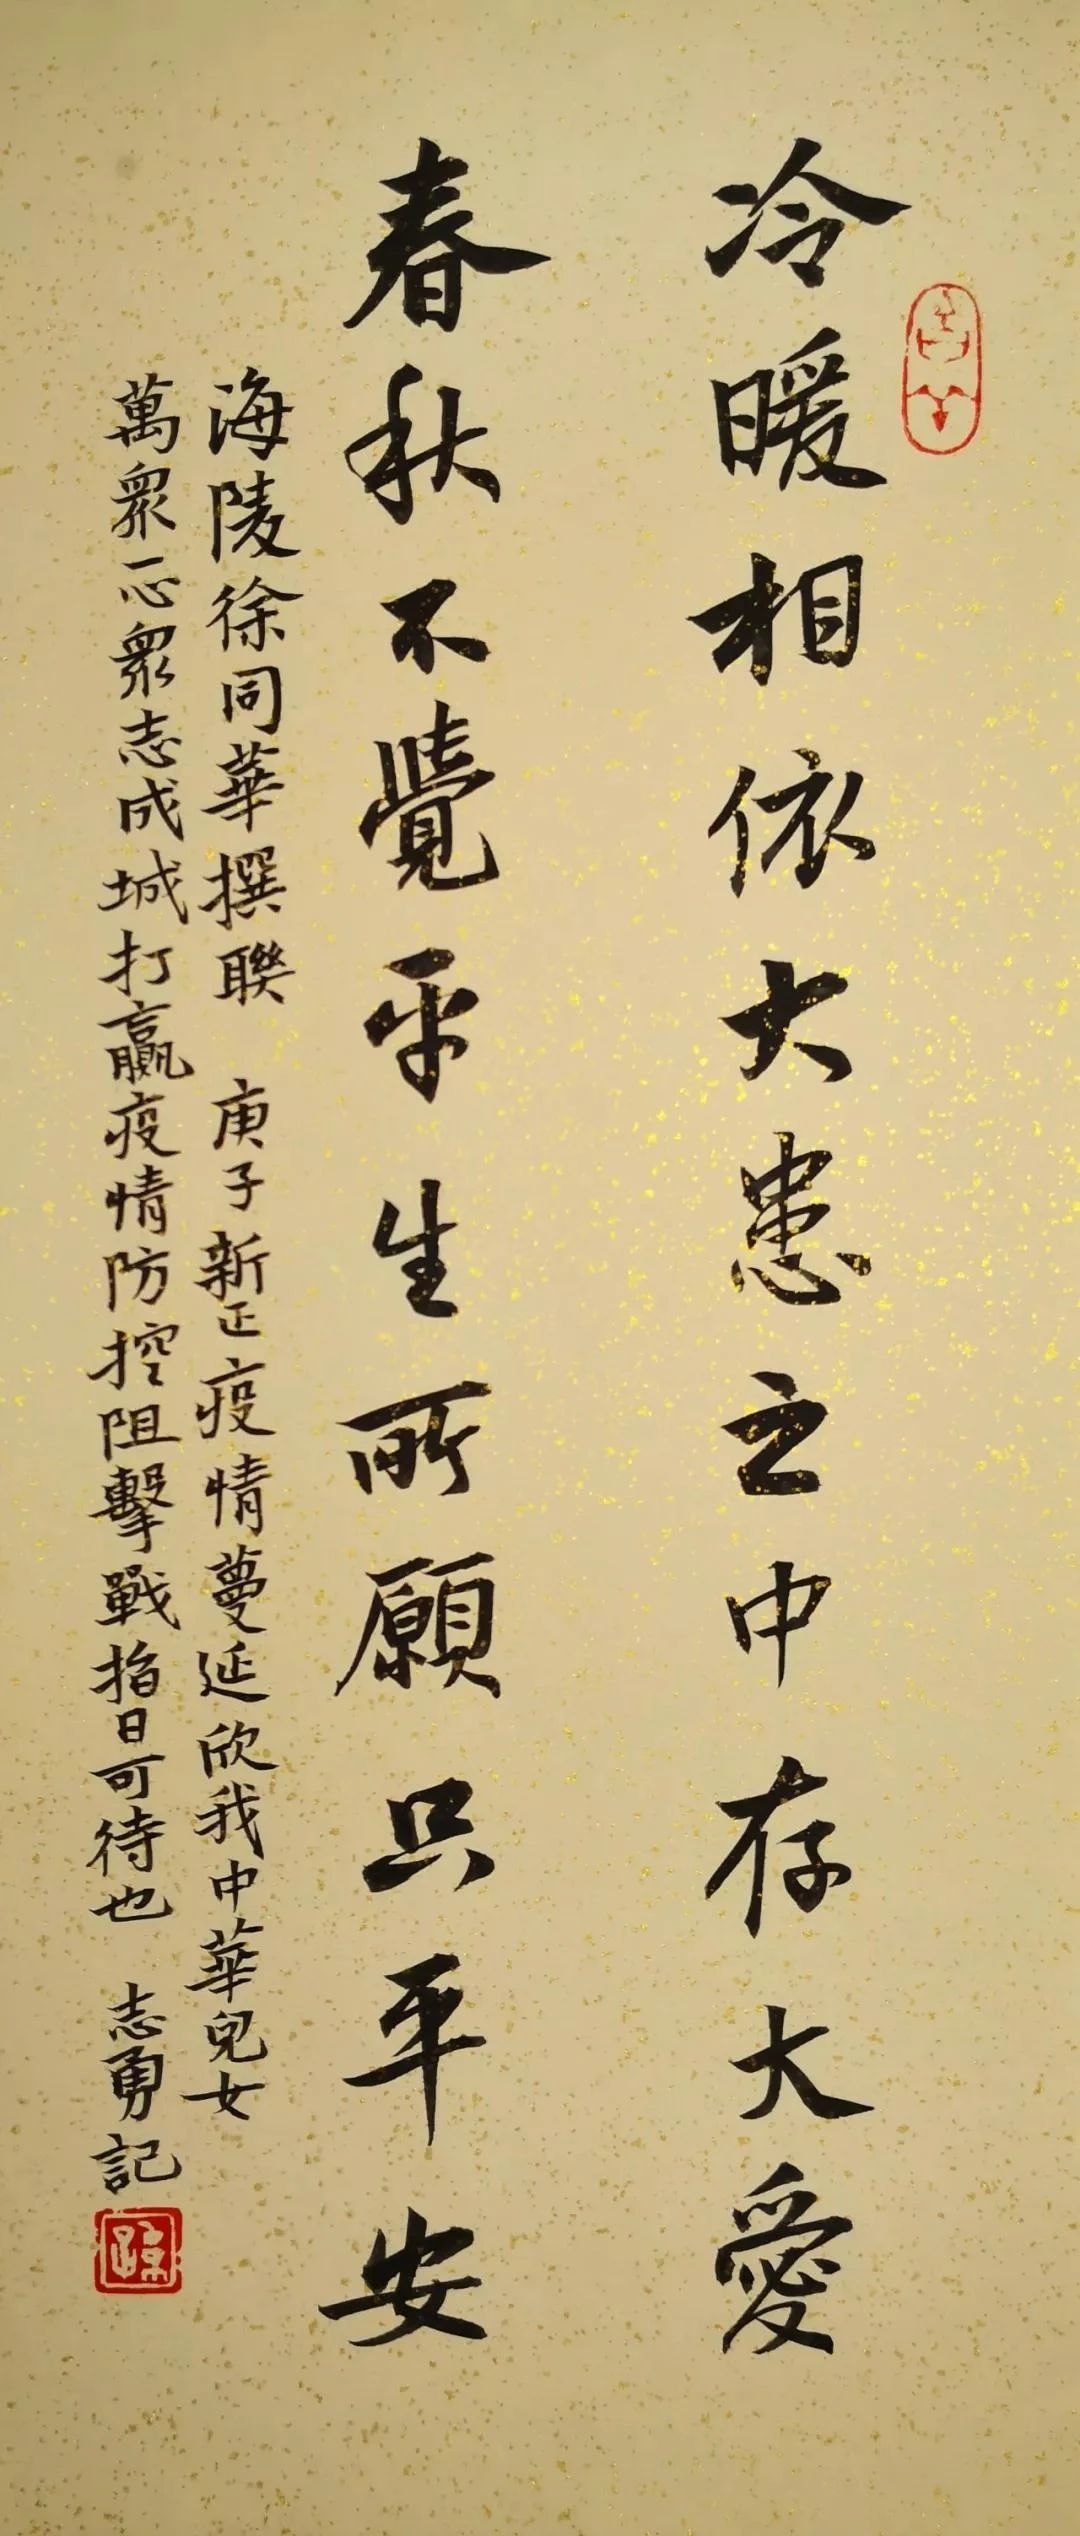 冷暖相依大患之中存大愛
春秋不覺平生所願只平安
海陵徐同華撰聯 庚子新正疫情蔓延欣我中華兒女
萬眾一心眾志成城打贏疫情防控阻擊戰指日可待也 志勇記